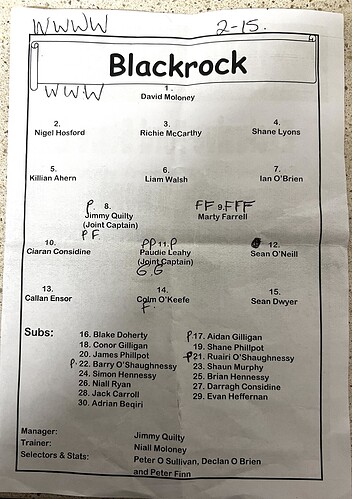 WWWW 2-15.
Blackrock
WWW
1.
David Moloney
2. 3. 4.
Nigel Hosford Richie McCarthy Shane Lyons
5. 6. 7.
Killian Ahern Liam Walsh Ian O'Brien
P. 8. FF 9. FFF
Jimmy Quilty Marty Farrell
(Joint Captain)
P F.
10. PP 11. P 12.
Ciaran Considine Paudie Leahy Sean O'Neill
(Joint Captain)
G.G
13. 14. 15.
Callan Ensor Colm O'Keefe Sean Dwyer
F.
Subs: 16. Blake Doherty P 17. Aidan Gilligan
18. Conor Gilligan 19. Shane Phillpot
20. James Phillpot P 21. Ruairi O'Shaughnessy
P. 22. Barry O'Shaughnessy 23. Shaun Murphy
24. Simon Hennessy 25. Brian Hennessy
26. Niall Ryan 27. Darragh Considine
28. Jack Carroll 29. Evan Heffernan
30. Adrian Beqiri
Manager: Jimmy Quilty
Trainer: Niall Moloney
Selectors & Stats: Peter O Sullivan, Declan O Brien
and Peter Finn